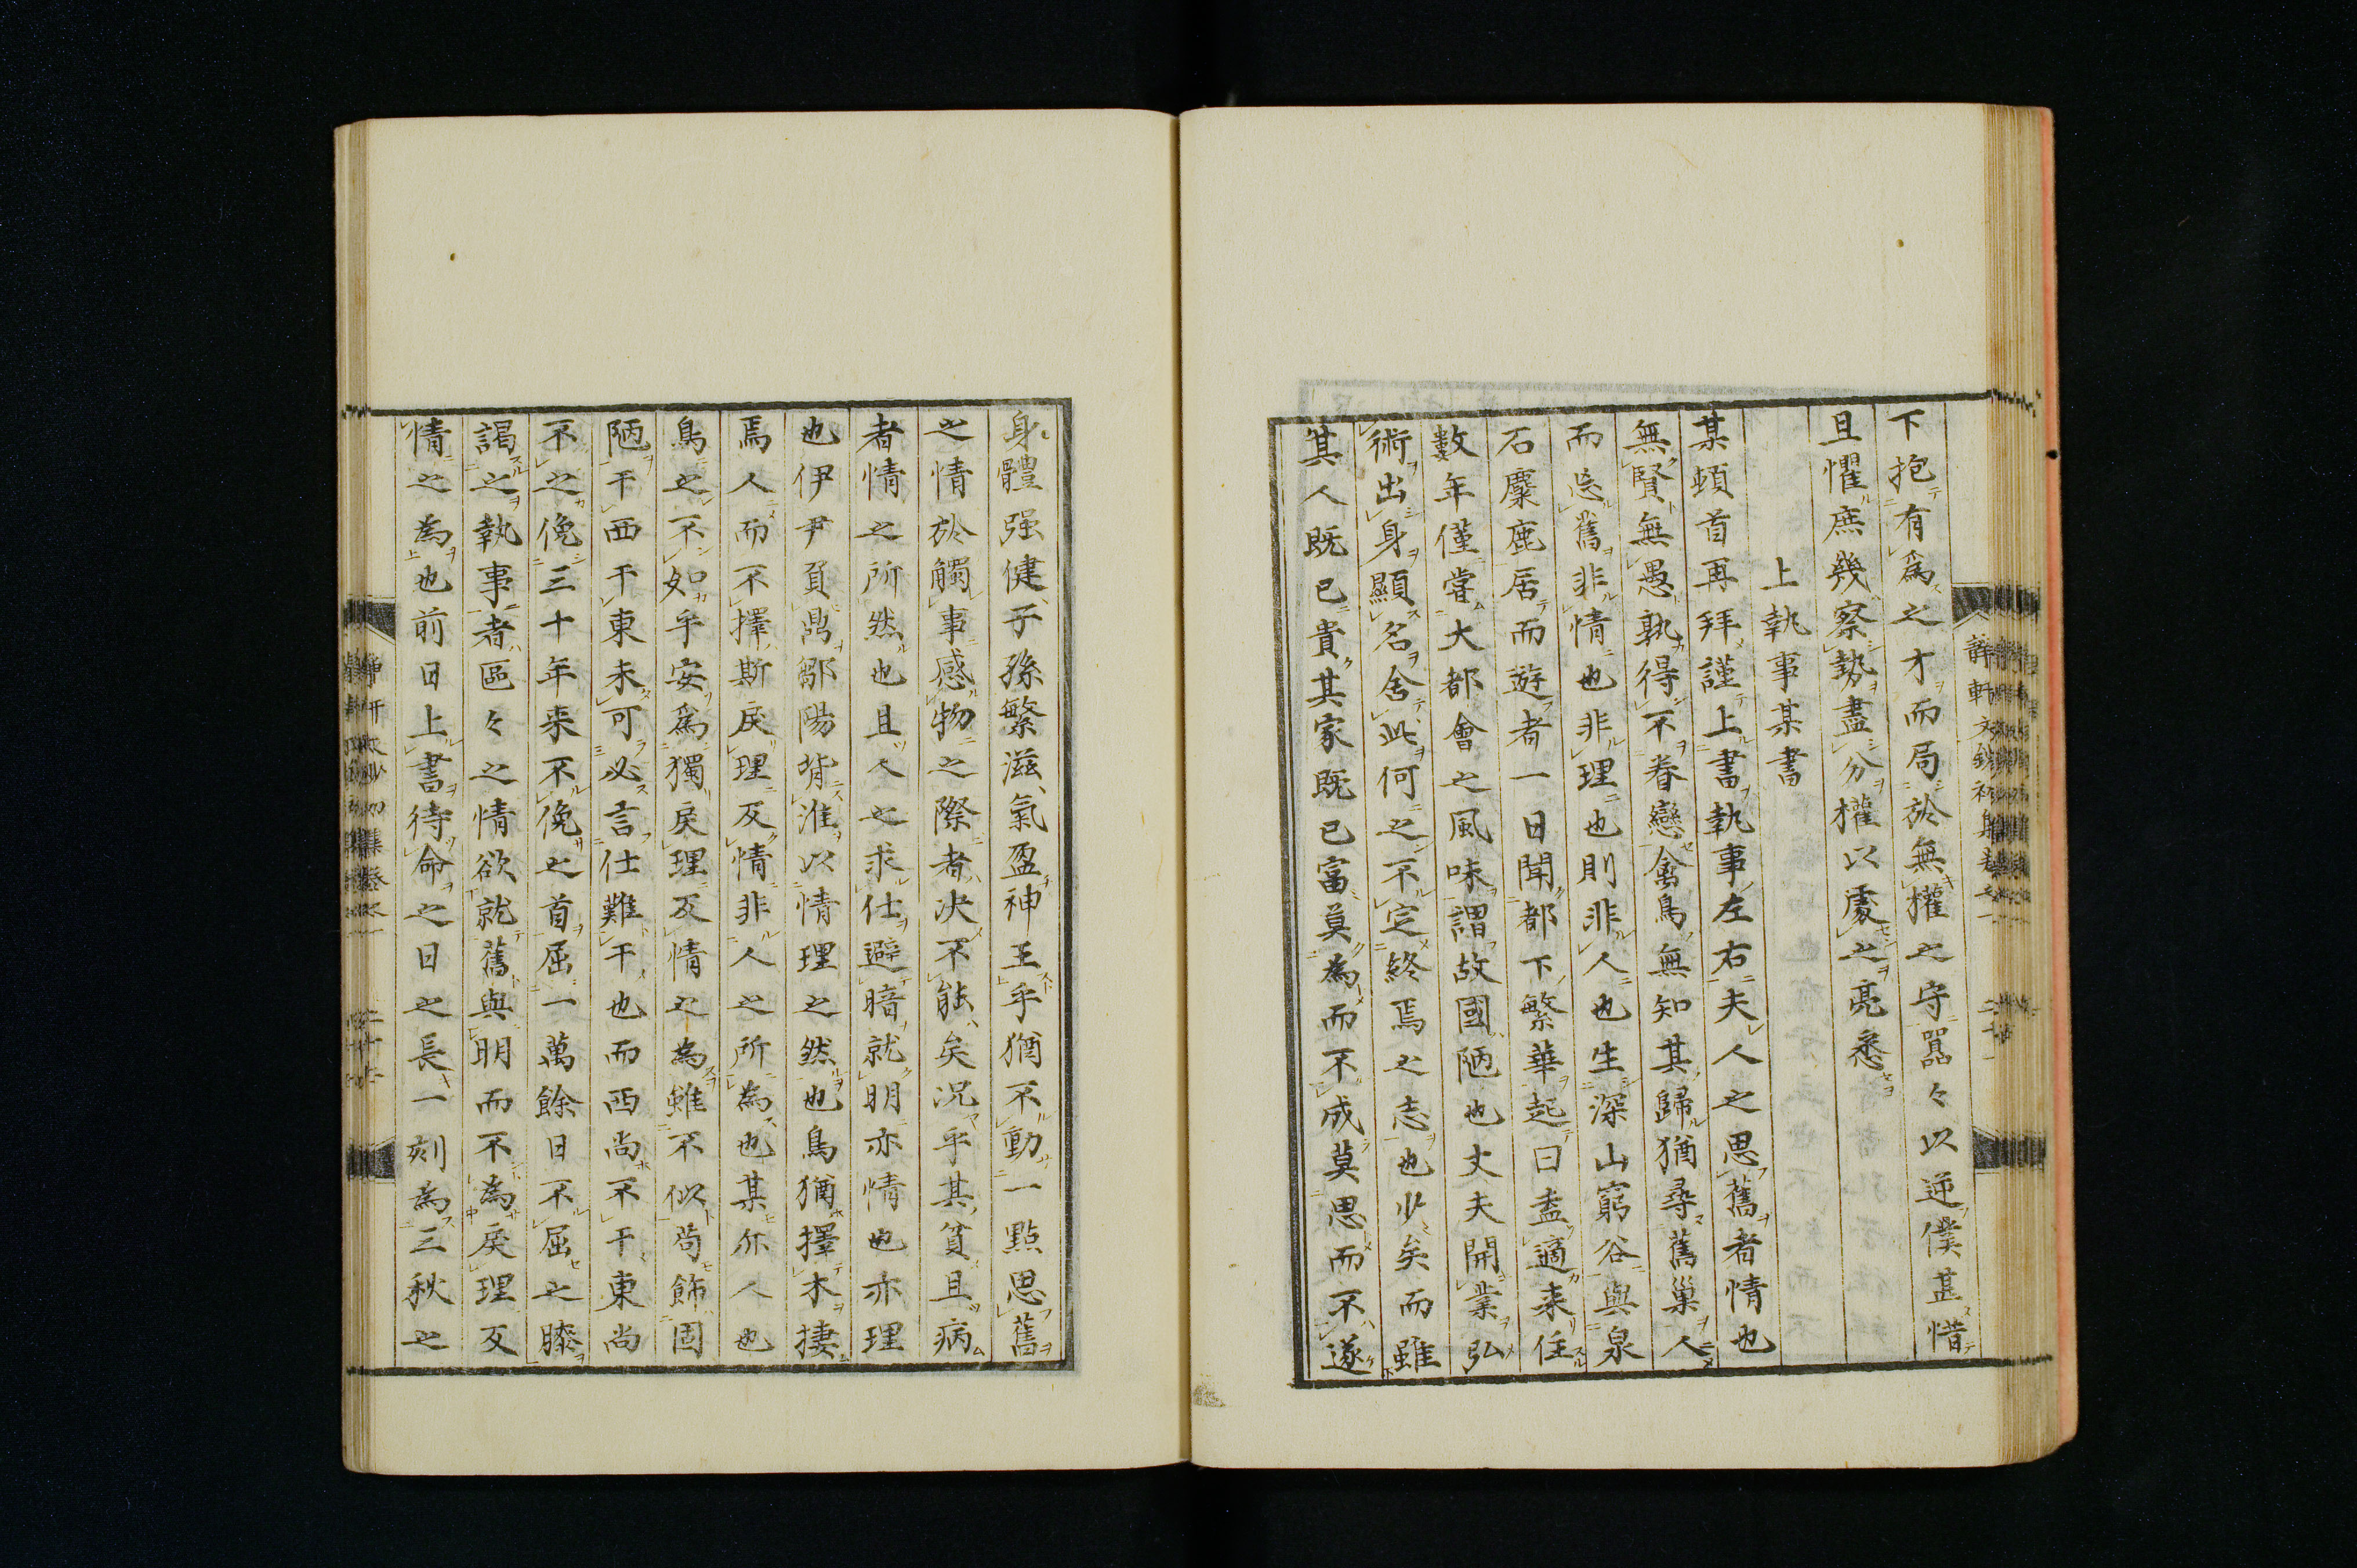 下抱有為之才而局於無權之守囂々以逆僕甚惜
且懼庶幾察勢盡分權以處之亮悉
上執事某書
某頓首再拜謹上書執事左右夫人之思舊者情也
無賢無愚孰得不眷戀禽鳥無知其歸猶尋舊巢人
而忘舊非情也非理也則非人也生深山窮谷與泉
石麋鹿居而遊者一日聞都下繁華起曰盍適来住
數年僅嘗大都會之風味謂故國陋也丈夫開業弘
術出身顯名舍此何之不定終焉之志也少矣而雖
其人既已貴其家既已富莫為而不成莫思而不遂
身體强健子孫繁滋氣盈神王乎猶不動一點思舊
之情於觸事感物之際者决不能矣况乎其貧且病
者情之所然也且人之求仕避暗就明亦情也亦理
也伊尹負鼎鄒陽背淮以情理之然也鳥猶擇木捿
焉人而不擇斯戾理反情非人之所為也某亦人也
鳥之不如乎安為獨戾理反情之為雖不似苟飾固
陋干西干東未可必言仕難干也而西尚不干東尚
不之俛三十年来不俛之首屈一萬餘日不屈之膝
謁之執事者區々之情欲就舊與明而不為戾理反
情之為也前日上書待命之日之長一刻為三秋之